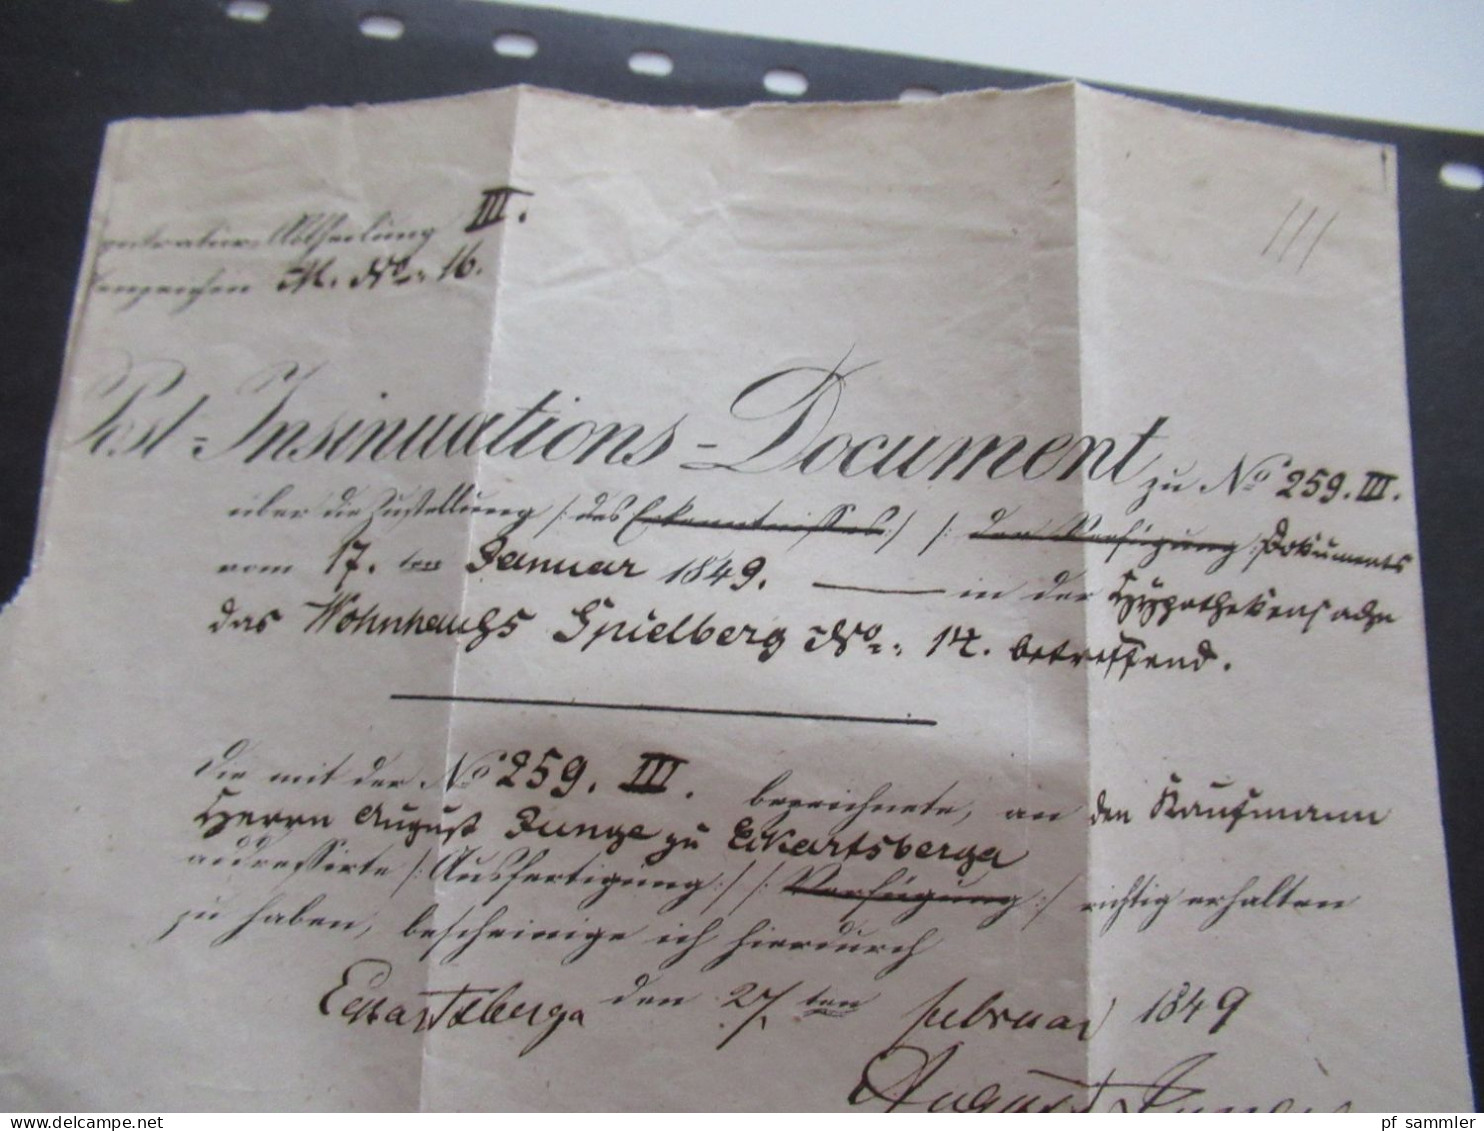 III.
Abtheilung III.
M. No. 16.
Post-Insinuations-Document zu No 259. III.
über die Zustellung /: des Erkenntnisses :/ /: der Verfügung :/ Dokuments
vom 17. ten Januar 1849. — in der Hypothekensache
das Wohnhaus Spielberg No. 14. betreffend.
Die mit der No 259. III. bezeichnete, an den Kaufmann
Herrn August Junge zu Eckartsberga
addressirte /: Ausfertigung :/ /: Verfügung :/ richtig erhalten
zu haben, bescheinige ich hierdurch
Eckartsberga den 27 ten Februar 1849
August Junge
pf sammler